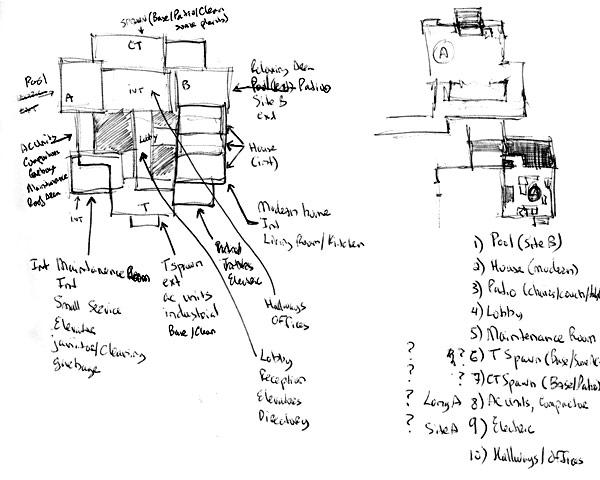 Spawn (Base/Patio/Clean
some plants)
CT
Pool
A
INT
B
Relaxing Area
Pool (ext) Patio
Site B
ext
AC Units
Compactor
Garbage
Maintenance
Roof Area
INT
Lobby
House
(int)
T
Modern home
Int
Living Room/Kitchen
Int Maintenance Room
Int
Small Service
Elevator
janitor/Cleaning
garbage
T Spawn
ext
ac units
industrial
Base/Clean
Electric
Hallways
Offices
Lobby
Reception
Elevators
Directory
A
A
1) Pool (Site B)
2) House (modern)
3) Patio (chairs/couch/
4) Lobby
5) Maintenance Room
? ? 6) T Spawn (Base/
? ? 7) CT Spawn (Base/Patio)
? Long A 8) AC units, Compactor
? Site A 9) Electric
10) Hallways/offices